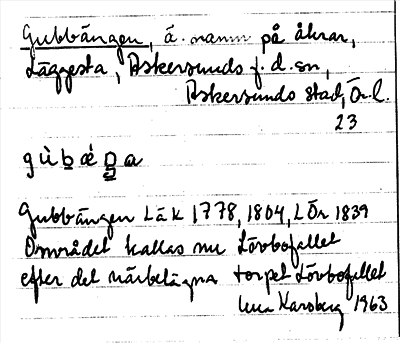 Gubbängen, ä. namn på åkrar,
Läggesta, Askersunds f.d. sn,
Askersunds stad, Ör. l.
23
gùbǽŋa
Gubbängen LäK 1778, 1804, LÖr 1839
Området kallas nu Lövbofallet
efter det närbelägna torpet Lövbofallet
Karsberg 1963